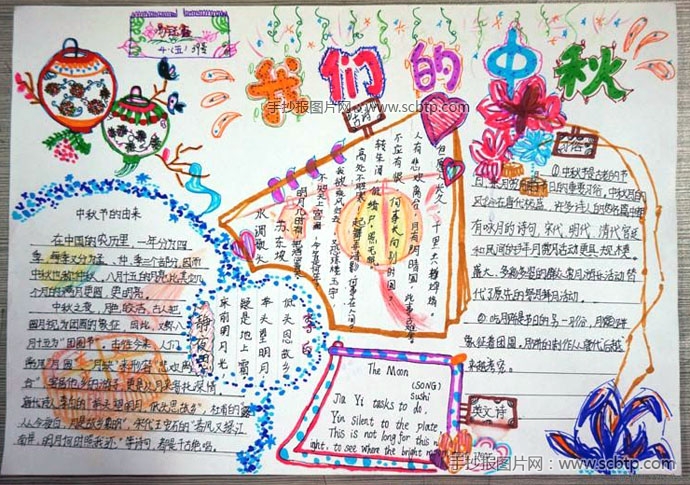 我们的中秋
手抄报图片网：www.scbtp.com
四(五)
诗词
习俗
中秋节的由来
在中国的农历里，一年分为四
季，每季又分为孟、仲、季三个部分，因而
中秋也称仲秋。八月十五的月亮比其他几
个月的满月更圆，更明亮。
中秋之夜，月色皎洁，古人把
圆月视为团圆的象征，因此，又称八
月十五为“团圆节”。古往今来，人们
常用“月圆”、“月缺”来形容“悲欢离
合”，客居他乡的游子，更是以月来寄托深情。
唐代诗人李白的“举头望明月，低头思故乡”，杜甫的“露
从今夜白，月是故乡明”，宋代王安石的“春风又绿江
南岸，明月何时照我还”等诗句，都是千古绝唱。
水调歌头
苏东坡
明月几时有，把酒问青天。
不知天上宫阙，今夕是何年。
我欲乘风归去，又恐琼楼玉宇，
高处不胜寒，起舞弄清影，何似在人间？
转朱阁，低绮户，照无眠。
不应有恨，何事长向别时圆？
人有悲欢离合，月有阴晴圆缺，此事古难全。
但愿人长久，千里共婵娟。
静夜思
李白
床前明月光
疑是地上霜
举头望明月
低头思故乡
①中秋节最古老的节
日，赏月
的重要习俗，中秋赏月的
风俗在唐代极盛，许多诗人的名篇中都
有咏月的诗句，宋代、明代、清代宫廷
和民间的拜月赏月活动更具规模。
②吃月饼是节日的另一习俗，月饼
象征着团圆，
The Moon
(SONG)
sushi
Jia Yi tasks to do,
Yin silent to the plate,
This is not long for this n
ight, to see where the bright moon
英文诗
手抄报图片网：www.scbtp.com